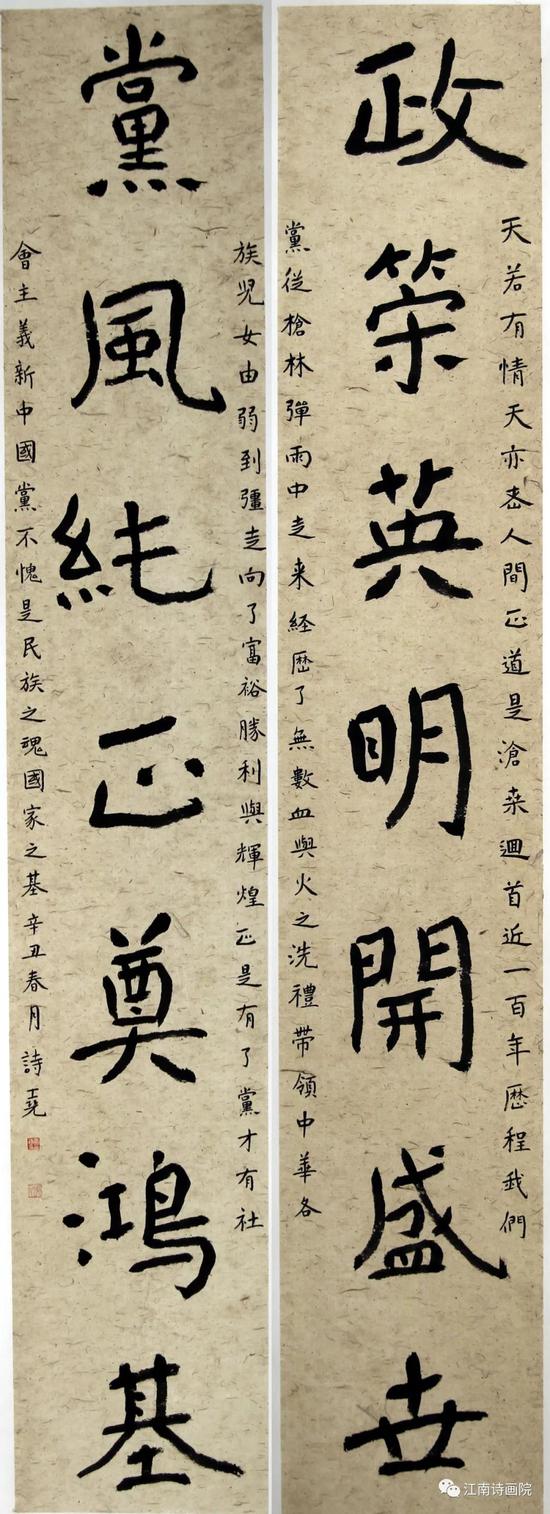 政策英明開盛世
天若有情天亦老人間正道是滄桑迴首近一百年歷程我們
黨從槍林彈雨中走来経歷了無數血與火之洗禮帶領中華各
黨風純正奠鴻基
族兒女由弱到彊走向了富裕勝利與輝煌正是有了黨才有社
會主義新中國黨不愧是民族之魂國家之基辛丑春月詩
江南诗画院